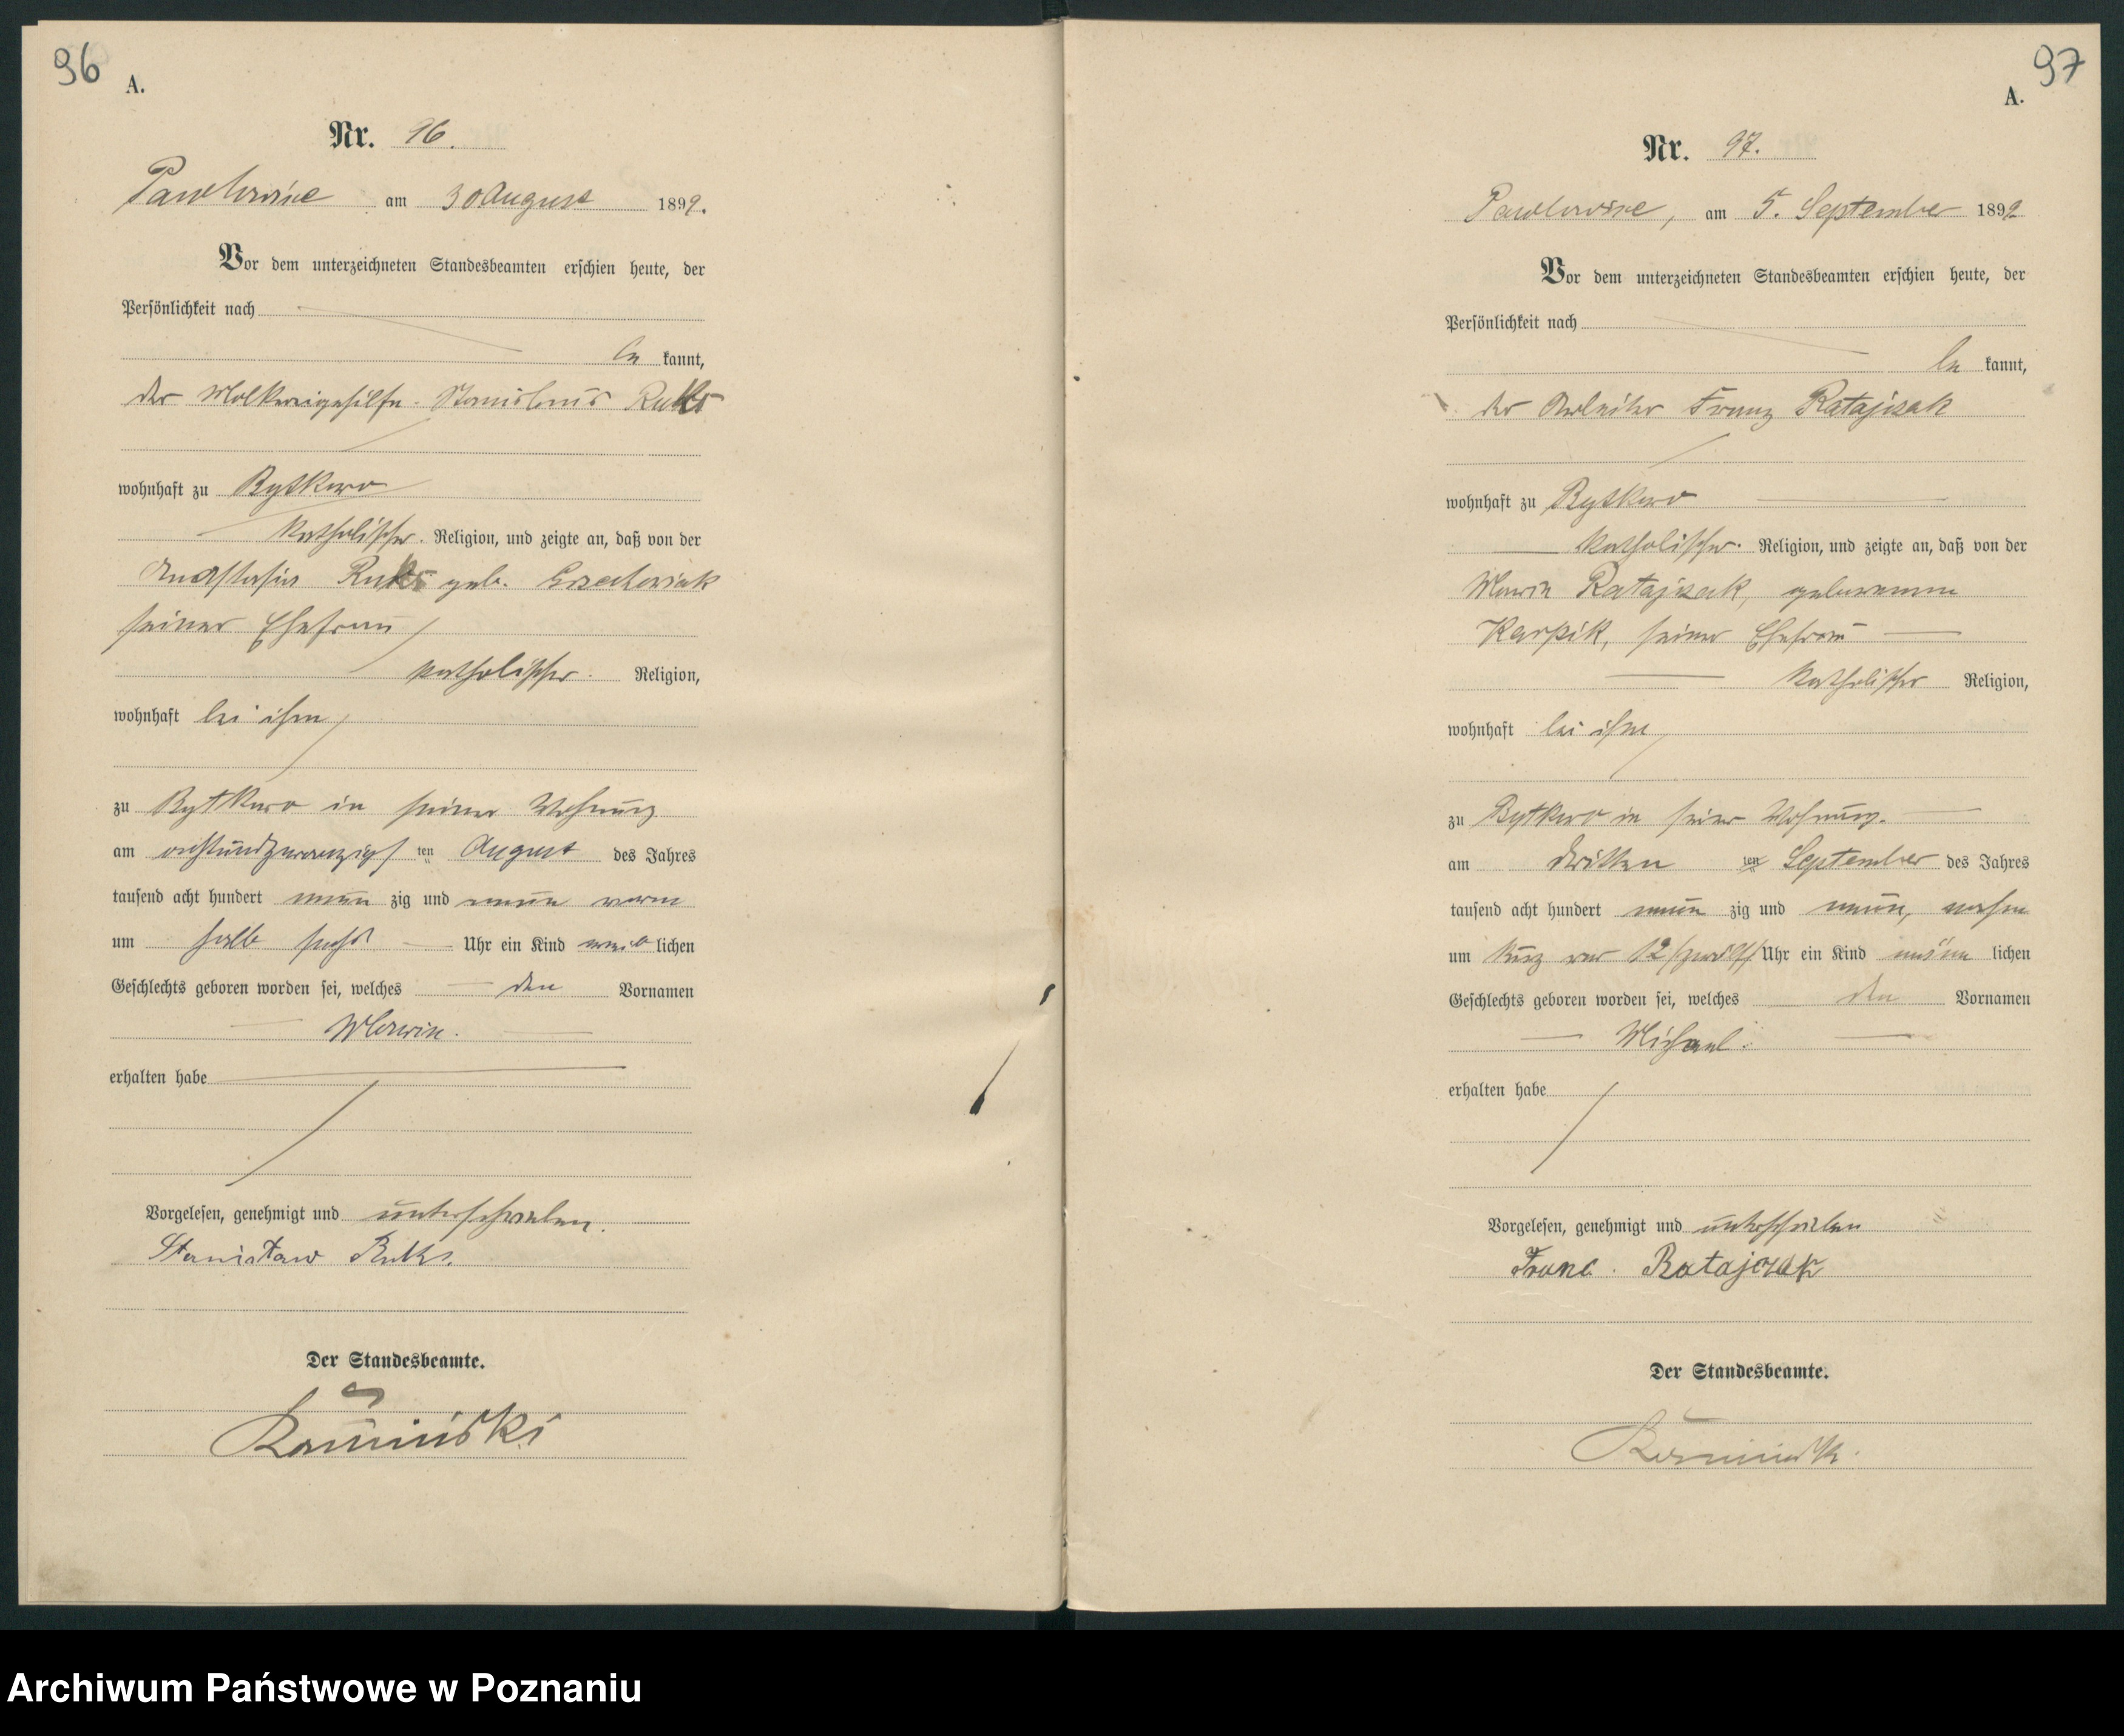 96
A.
Nr. 96.
Pawlowice am 30 August 1899.
Vor dem unterzeichneten Standesbeamten erschien heute, der
Persönlichkeit nach
be kannt,
der Molkereigehilfe Stanislaus Ruks
wohnhaft zu Bytkowo
katholischer Religion, und zeigte an, daß von der
Anastasia Ruks geb. Grzechowiak
seiner Ehefrau
katholischer Religion,
wohnhaft bei ihm
zu Bytkowo in seiner Wohnung
am achtundzwanzigs ten August des Jahres
tausend acht hundert neun zig und neun vorm
um halb sechs Uhr ein Kind weib lichen
Geschlechts geboren worden sei, welches den Vornamen
Marie.
erhalten habe
Vorgelesen, genehmigt und unterschrieben.
Stanisław Ruks.
Der Standesbeamte.
Kaminski
97
A.
Nr. 97.
Pawlowice, am 5. September 1899
Vor dem unterzeichneten Standesbeamten erschien heute, der
Persönlichkeit nach
be kannt,
der Arbeiter Franz Ratajczak
wohnhaft zu Bytkowo
katholischer Religion, und zeigte an, daß von der
Maria Ratajczak, geborenen
Karpik, seiner Ehefrau
katholischer Religion,
wohnhaft bei ihm
zu Bytkowo in seiner Wohnung.
am dritten ten September des Jahres
tausend acht hundert neun zig und neun, nachm
um kurz vor 12/zwölf/ Uhr ein Kind männ lichen
Geschlechts geboren worden sei, welches den Vornamen
Michael.
erhalten habe
Vorgelesen, genehmigt und unterschrieben
Franc. Ratajczak
Der Standesbeamte.
Kaminski.
Archiwum Państwowe w Poznaniu